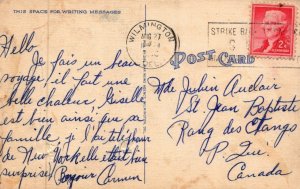 THIS SPACE FOR WRITING MESSAGES
Hello,
Je fais un beau
voyage il fait une
belle chaleur, Giselle
est bien ainsi que sa
famille, je l'ai téléphoné
de New York elle était bien
surprise Bonjour Carmen
WILMINGTON
AUG 27
STRIKE
2¢
POST CARD
Mde Julien Auclair
St Jean Baptiste
Rang des Etangs
P. Que
Canada